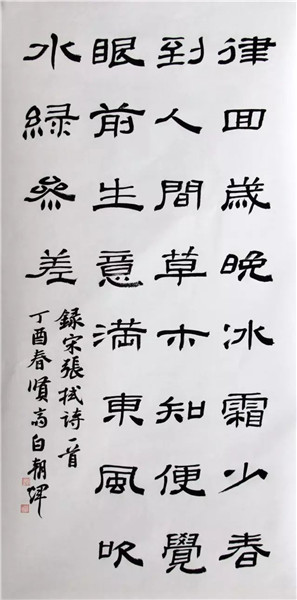 律回歲晚冰霜少春
到人間草木知便覺
眼前生意滿東風吹
水緑參差
錄宋張栻詩一首
丁酉春賢高白朝輝